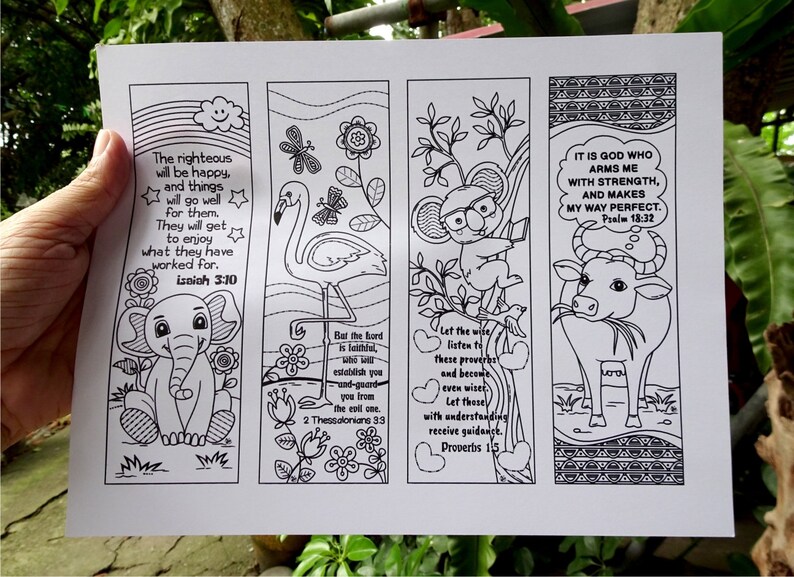 The righteous
will be happy,
and things
will go well
for them.
They will get
to enjoy
what they have
worked for.
isaiah 3:10
But the Lord
is faithful,
who will
establish you
and guard
you from
the evil one.
2 Thessalonians 3:3
Let the wise
listen to
these proverbs
and become
even wiser.
Let those
with understanding
receive guidance.
Proverbs 1:5
IT IS GOD WHO
ARMS ME
WITH STRENGTH,
AND MAKES
MY WAY PERFECT.
Psalm 18:32